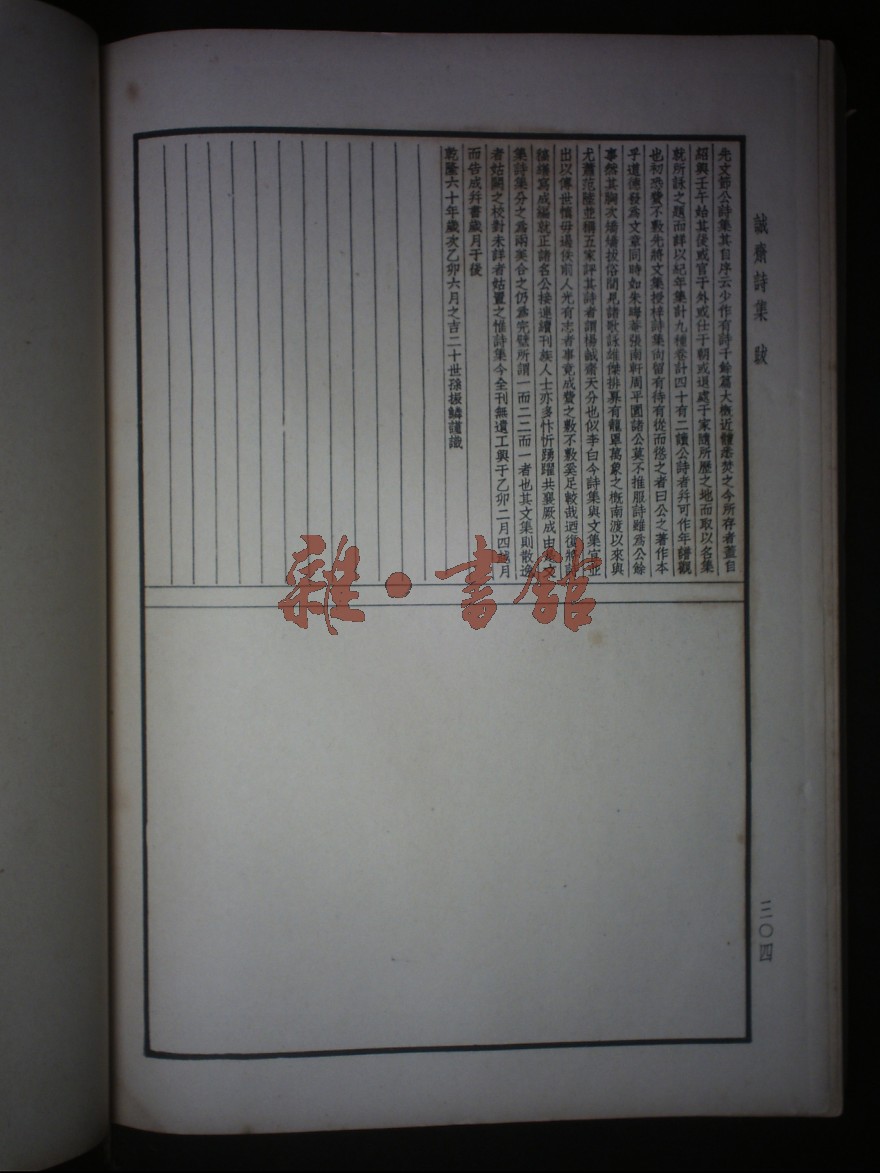 誠齋詩集 跋
先文節公詩集其自序云少作有詩千餘篇大概近體悉焚之今所存者蓋自
紹興壬午始其後或官于外或仕于朝或退處于家隨所歷之地而取以名集
就所詠之題而詳以紀年集計九種卷計四十有二讀公詩者幷可作年譜觀
也初恐費不敷先將文集授梓詩集尚留有待有從而慫之者曰公之著作本
乎道德發為文章同時如朱晦菴張南軒周平園諸公莫不推服詩雖為公餘
事然其胸次矯矯拔俗聞見諸歌詠雄傑排奡有籠罩萬象之概南渡以來與
尤蕭范陸並稱五家評其詩者謂楊誠齋天分也似李白今詩集與文集宜並
出以傳世慎毋遏佚前人光有志者事竟成費之敷不敷奚足較哉迺復將詩
接繕寫成編就正諸名公接連續刊族人士亦多忭忻踴躍共襄厥成由是文
集詩集分之為兩美合之仍為完璧所謂一而二二而一者也其文集則散逸
者姑闕之校對未詳者姑置之惟詩集今全刊無遺工興于乙卯二月四越月
而告成幷書歲月于後
乾隆六十年歲次乙卯六月之吉二十世孫振鱗謹識
三〇四
雜·書館